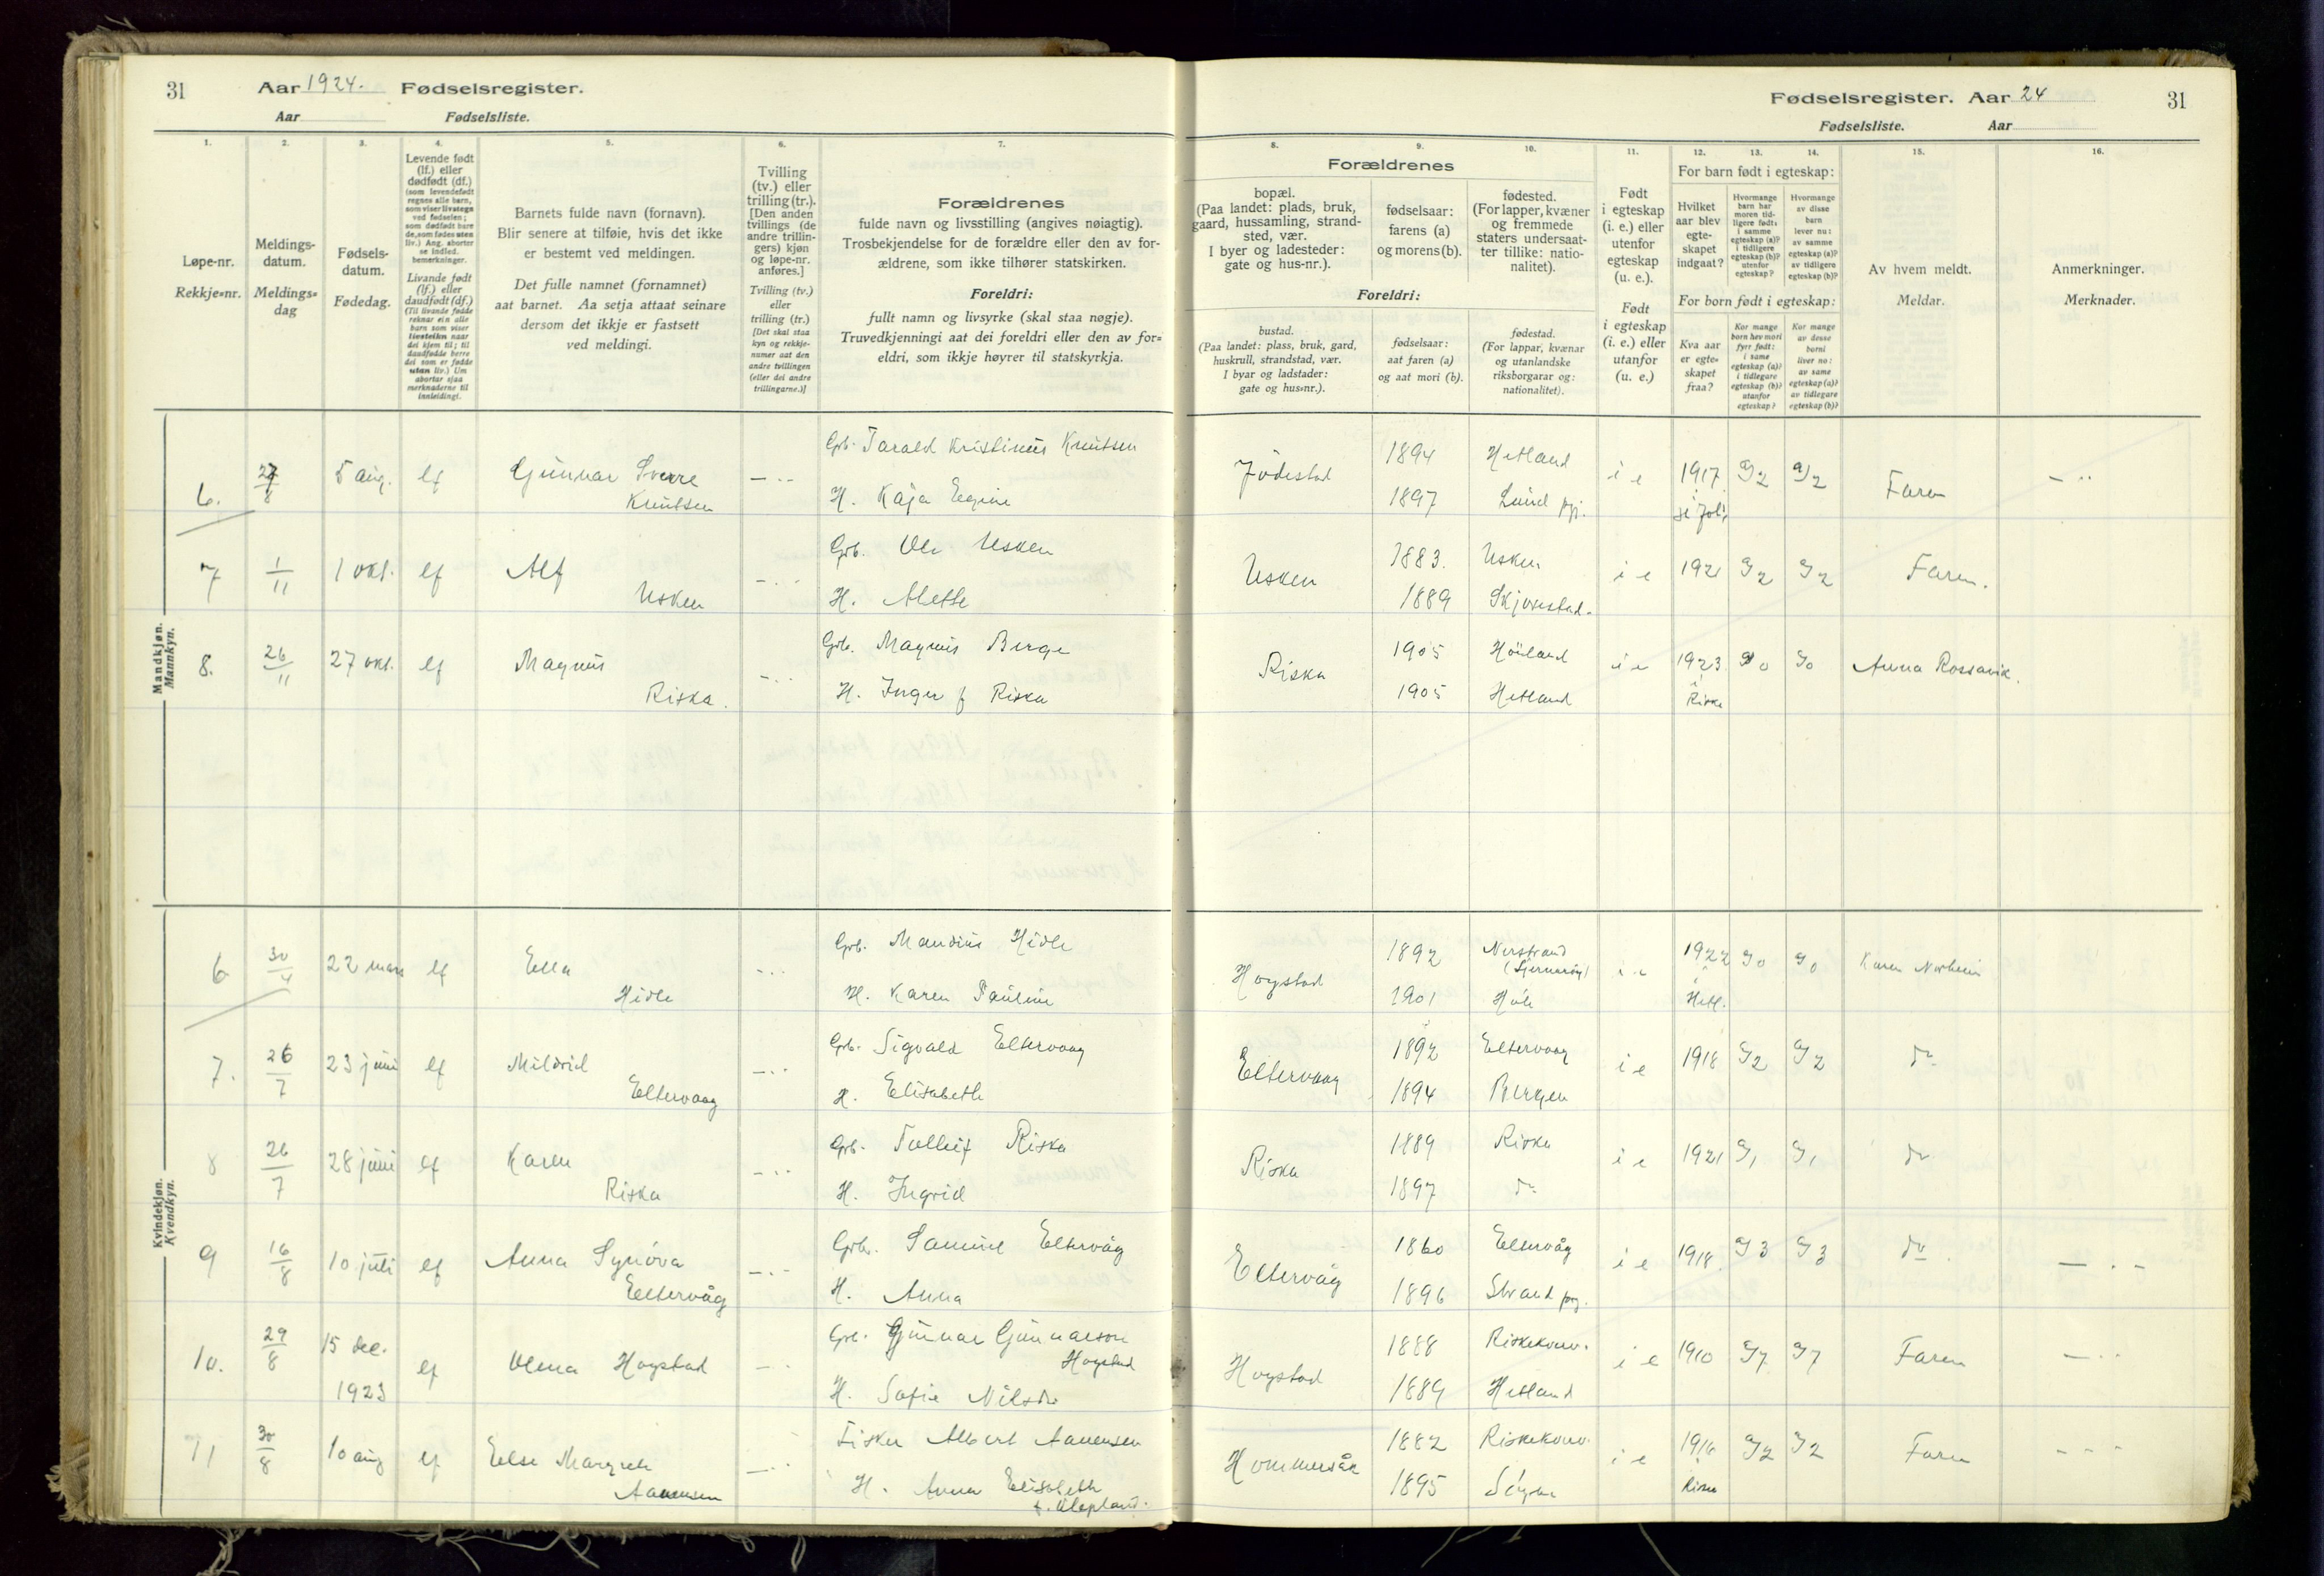 31 Aar 1924. Fødselsregister.
Aar Fødselsliste.
Fødselsregister. Aar 24 31
Fødselsliste. Aar
1. 2. 3. 4. 5. 6. 7. 8. 9. 10. 11. 12. 13. 14. 15. 16.
Løpe-nr.
Rekkje=nr.
Meldings-
datum.
Meldings=
dag
Fødsels-
datum.
Fødedag.
Levende født
(lf.) eller
dødfødt (df.)
(som levendefødt
regnes alle barn,
som viser livstegn
ved fødselen;
som dødfødt bare
de, som fødes uten
liv.) Ang. aborter
se indled.
bemerkninger.
Livande født
(lf.) eller
daudfødt (df.)
(Til livande fødde
reknar ein alle
born som viser
livsteikn naar
dei kjem til; til
daudfødde berre
dei som er fødde
utan liv.) Um
abortar sjaa
merknaderne til
innleidingi.
Barnets fulde navn (fornavn).
Blir senere at tilføie, hvis det ikke
er bestemt ved meldingen.
Det fulle namnet (fornamnet)
aat barnet. Aa setja attaat seinare
dersom det ikkje er fastsett
ved meldingi.
Tvilling
(tv.) eller
trilling (tr.).
[Den anden
tvillings (de
andre trillin-
gers) kjøn
og løpe-nr.
anføres.]
Tvilling (tv.)
eller
trilling (tr.)
[Det skal staa
kyn og rekkje-
numer aat den
andre tvillingen
(eller dei andre
trillingarne.)]
Forældrenes
fulde navn og livsstilling (angives nøiagtig).
Trosbekjendelse for de forældre eller den av for-
ældrene, som ikke tilhører statskirken.
Foreldri:
fullt namn og livsyrke (skal staa nøgje).
Truvedkjenningi aat dei foreldri eller den av for=
eldri, som ikkje høyrer til statskyrkja.
Forældrenes
bopæl.
(Paa landet: plads, bruk,
gaard, hussamling, strand-
sted, vær.
I byer og ladesteder:
gate og hus-nr.).
fødselsaar:
farens (a)
og morens (b).
fødested.
(For lapper, kvæner
og fremmede
staters undersaat-
ter tillike: natio-
nalitet).
Foreldri:
bustad.
(Paa landet: plass, bruk, gard,
huskrull, strandstad, vær.
I byar og ladstader:
gate og hus=nr.).
fødselsaar:
aat faren (a)
og aat mori (b).
fødestad.
(For lappar, kvænar
og utanlandske
riksborgarar og:
nationalitet).
Født
i egteskap
(i. e.) eller
utenfor
egteskap
(u. e.).
Født
i egteskap
(i. e.) eller
utanfor
(u. e.)
For barn født i egteskap:
Hvilket
aar blev
egte-
skapet
indgaat?
Hvormange
barn har
moren tid-
ligere født:
i samme
egteskap (a)?
i tidligere
egteskap (b)?
utenfor
egteskap?
Hvormange
av disse
barn
lever nu:
av samme
egteskap (a)?
av tidligere
egteskap (b)?
For born født i egteskap:
Kva aar
er egte=
skapet
fraa?
Kor mange
born hev mori
fyrr født:
i same
egteskap (a)?
i tidlegare
egteskap (b)?
utanfor
egteskap?
Kor mange
av desse
borni
liver no:
av same
egteskap (a)?
av tidlegare
egteskap (b)?
Av hvem meldt.
Meldar.
Anmerkninger.
Merknader.
Mandkjøn.
Mannkyn.
Grb. Tarald Kristinius Knutsen 1894 Hetland
6. 27/8 5 aug. lf Gunnar Sverre Jödestad i e 1917 2 2 Faren
Knutsen H. Kaja Eegine 1897 Lund pgj.
Grb. Ole Usken 1883. Usken
7 1/11 1 okt. lf Alf Usken i e 1921 2 2 Faren.
Usken H. Alette 1889 Skjørestad.
Grb. Magnus Berge 1905 Höiland
8. 26/11 27 okt. lf Magnus Riska i e 1923 0 0 Anna Rossavik.
Riska. H. Inger f Riska 1905 Hetland i Riska
Kvindekjøn.
Kvendkyn.
Grb. Mandius Hidle 1892 Nerstrand
6 30/4 22 mars lf Ella Hogstad i e 1922 0 0 Karen Norheim
Hidle H. Karen Pauline 1901 Høle i Hetl.
Grb. Sigvald Eltervaag 1892 Eltervaag
7. 26/7 23 juni lf Mildrid Eltervaag i e 1918 2 2 do
Eltervaag H. Elisabeth 1894 Bergen
Grb. Tolleif Riska 1889 Riska
8 26/7 28 juni lf Karen Riska i e 1921 1 1 do
Riska H. Ingrid 1897 do
Grb. Samuel Eltervåg 1860 Eltervåg
9 16/8 10 juli lf Anna Synöva Eltervåg i e 1918 3 3 do.
Eltervåg H. Anna 1896 Strand pg.
Grb. Gunnar Gunnarson 1888 Riskekverv.
10. 29/8 15 dec. lf Olena Hogstad Hogstad Hogstad i e 1910 7 7 Faren
1923 H. Sofie Nilsdr 1889 Hetland
Fisker Albert Aanensen 1882 Riskekverv.
11 30/8 10 aug lf Else Margrete Hommersåk i e 1916 2 2 Faren
Aanensen H. Anna Elisabeth 1895 Søgne Riska